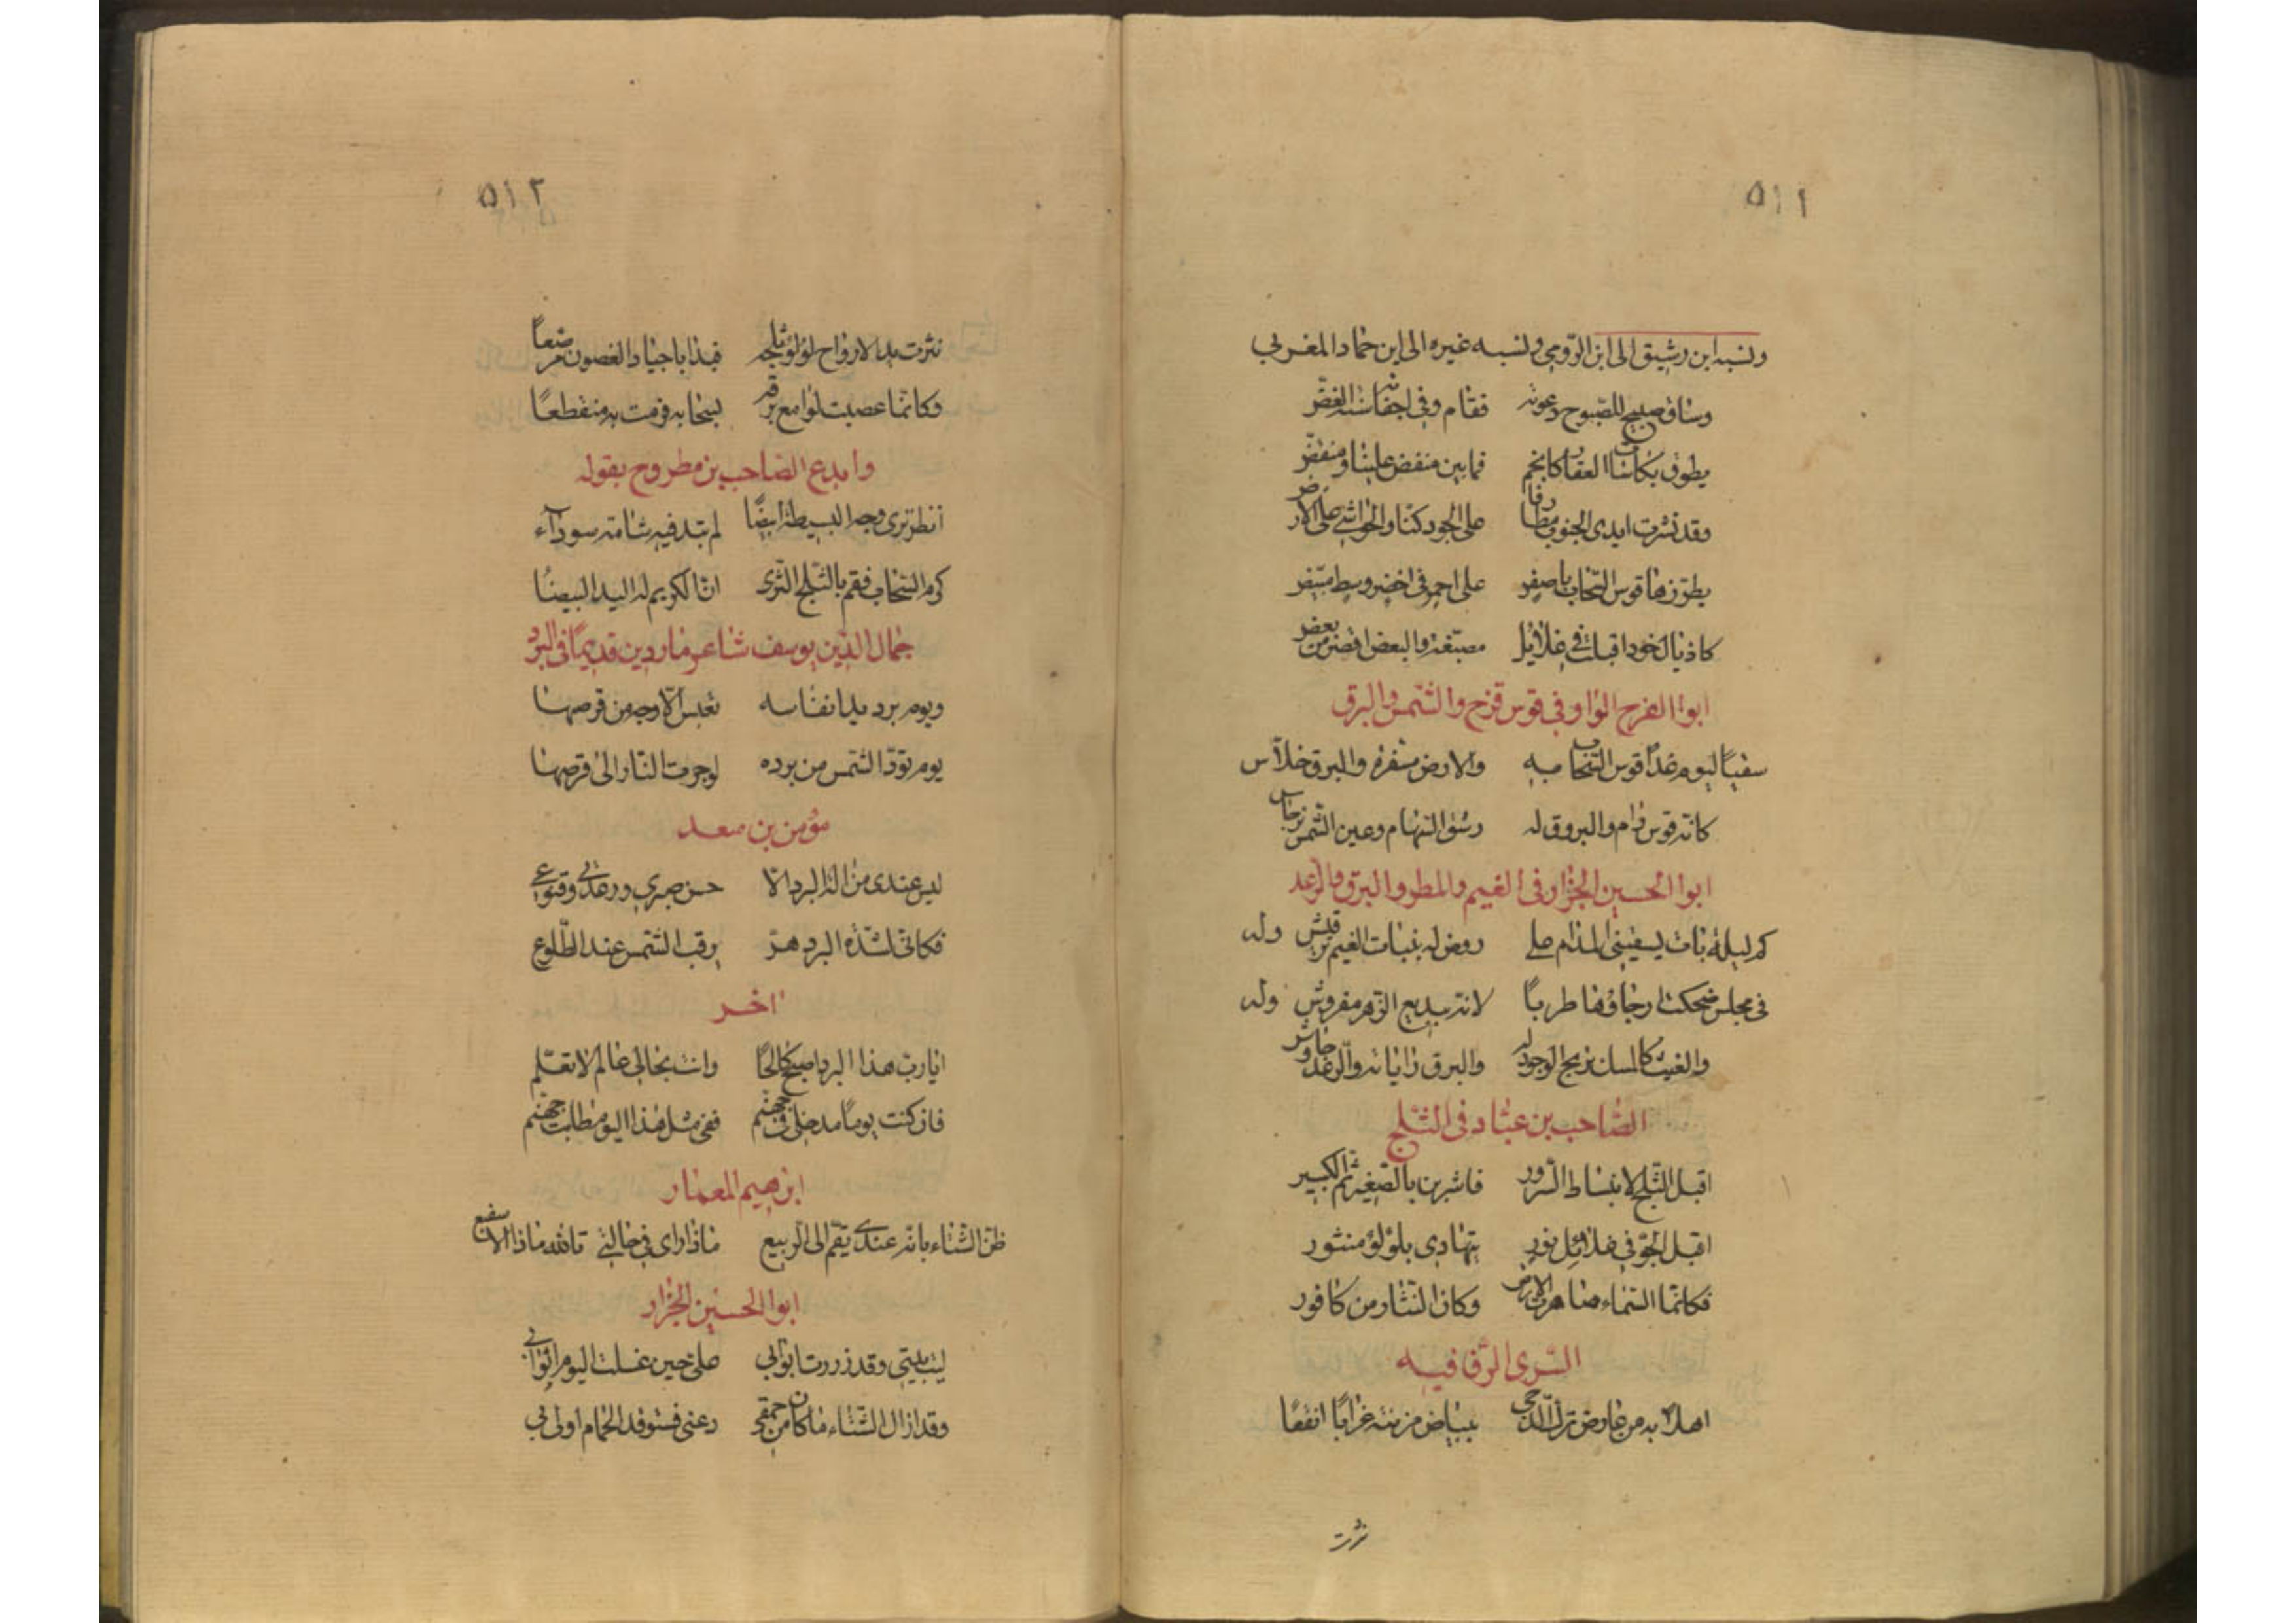 ٥١١
ونسبه ابن رشيق الى ابن الرومي ونسبه غيره الى ابن حماد المغربي
وساق صبيح للصبوح دعوته فقام وفي اجفانه سنة الغمض
يطوف بكاسات العقار كانجم فما بين منفض علينا ومنفض
وقد نشرت ايدى الجنوب مطارفا على الجود كنا والحواشي على الارض
يطرزها قوس السحاب باصفر على احمر في اخضر وسط مبيض
كاذيال خود اقبلت في غلائل مصبغة والبعض اقصر من بعض
ابوا الفرج الواو في قوس قزح والشمس والبرق
سقيا ليوم غدا قوس السحاب به والارض مسفرة والبرق خلاس
كانه قوس رام والبروق له رشق السهام وعين الشمس برجاس
ابوا الحسين الجزار في الغيم والمطر والبرق والرعد
كم ليلة بات يسقيني المدام على روض له بنبات الغيم ترقيش وله
في مجلس ضحكت ارجاؤها طربا لانه ببديع الزهر مفروش وله
والغيث كالمسك بزيج الوجود له والبرق راياته والرعد جاوش
الصاحب بن عباد في الثلج
اقبل الثلج لانبساط السرور فاشربن بالصغير ثم الكبير
اقبل الجو في غلائل نور يتهادى بلؤلؤ منثور
فكانما السماء صاهرت الارض وكان النثار من كافور
السرى الرفا فيه
اهلا به من عارض ترك الدجى ببياض مزنته غرابا ابقعا
نثرت
٥١٢
نثرت يد الارواح لؤلؤ ثلجه فبذا باجياد الغصون مرصعا
وكانما عصبت لوامع برقه بسحابه فرمت به متقطعا
وابدع الصاحب بن مطروح بقوله
انظر ترى وجه البسيطة ابيضا لم تبد فيه شامته سوداء
كرم السحاب فعم بالثلج الثرى ان الكريم له اليد البيضا
جمال الدين يوسف شاعر ماردين قديما في البرد
ويوم برد بدا نفاسه تعبس الاوجه من قرصها
يوم تود الشمس من برده لو جرت النار الى قرصها
مؤمن بن سعد
ليس عندى من الة البرد الا حسن صبرى ورعدتي وقنوعي
فكاني لشدة البرد هر يرقب الشمس عند الطلوع
اخر
ايا رب هذا البرد اصبح كالحا وانت بحالى عالم لا تعلم
فان كنت يوما مدخلى في جهنم ففي مثل هذا اليوم طابت جهنم
ابرهيم المعمار
ظن الشتاء بانه عندى يقم الى الربيع ماذا راى في حالتي تالله ماذا الا صفيع
ابوا الحسين الجزار
ليت بيتي وقد زررت ابوابي على حين غسلت اليوم اثوابي
وقد ازال الشتاء ما كان من حمقى دعنى فمستوقد الحمام اولى بي